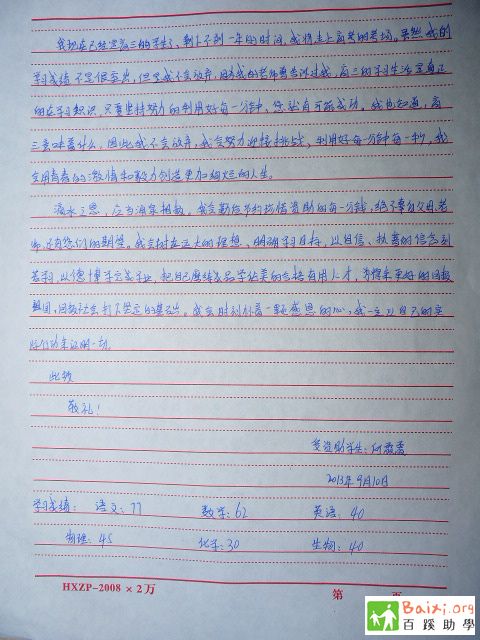 我现在已经是高三的学生了，剩下不到一年的时间，我将走上高考的考场。虽然我的
学习成绩不是很突出，但是我不会放弃，因为我的老师曾告诉过我，高三的学习生活是真正
的在学习知识，只要坚持努力的利用好每一分钟，您就有可能成功。我也知道，高
三意味着什么，因此我不会放弃，我会努力迎接挑战，利用好每一分钟每一秒，我
会用青春的激情和毅力创造更加绚烂的人生。
滴水之恩，应当涌泉相报。我会勤俭节约珍惜资助的每一分钱，绝不辜负父母、老
师、还有您们的期望。我会树立远大的理想、明确学习目标，以自信、执着的信念刻
苦学习，以优异学完成学业，把自己磨练成品学兼美的合格有用人才，为将来更好的回报
祖国，回报社会打下坚定的基石。我会时刻怀着一颗感恩的心，我一定以自己的实
际行动来证明一切。
此致
敬礼！
受资助学生：何
2013年9月10日
学习成绩： 语文：77 数学：62 英语：40
物理：45 化学：30 生物：40
HXZP-2008 × 2万 第 页
Baixi.org
百蹊助學